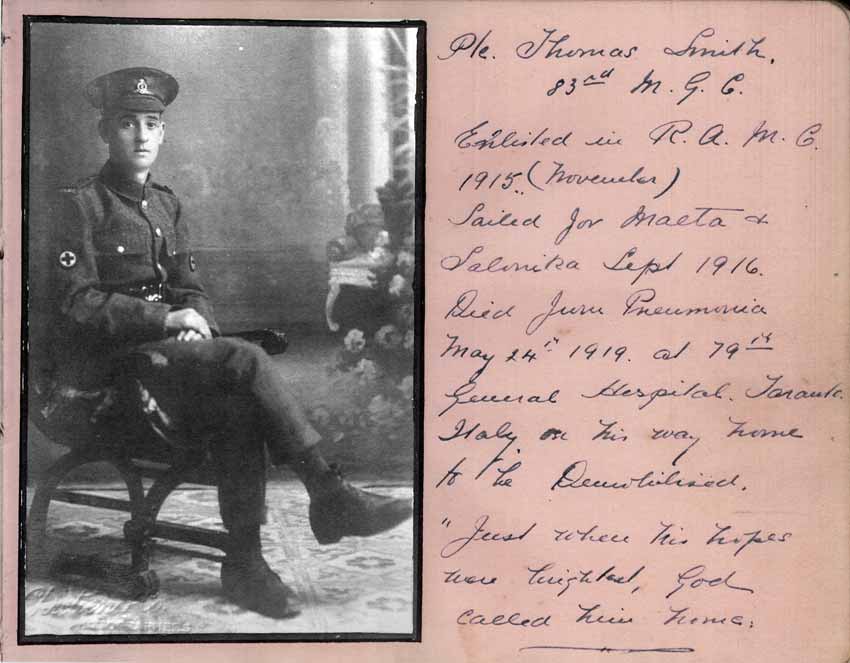 Pte. Thomas Smith.
83rd M. G. C.
Enlisted in R. A. M. C.
1915. (November)
Sailed for Malta &
Salonika Sept 1916.
Died from Pneumonia
May 24th 1919. at 79th
General Hospital. Taranto.
Italy, on his way home
to be Demobilised.
"Just when his hopes
were brightest, God
called him home.